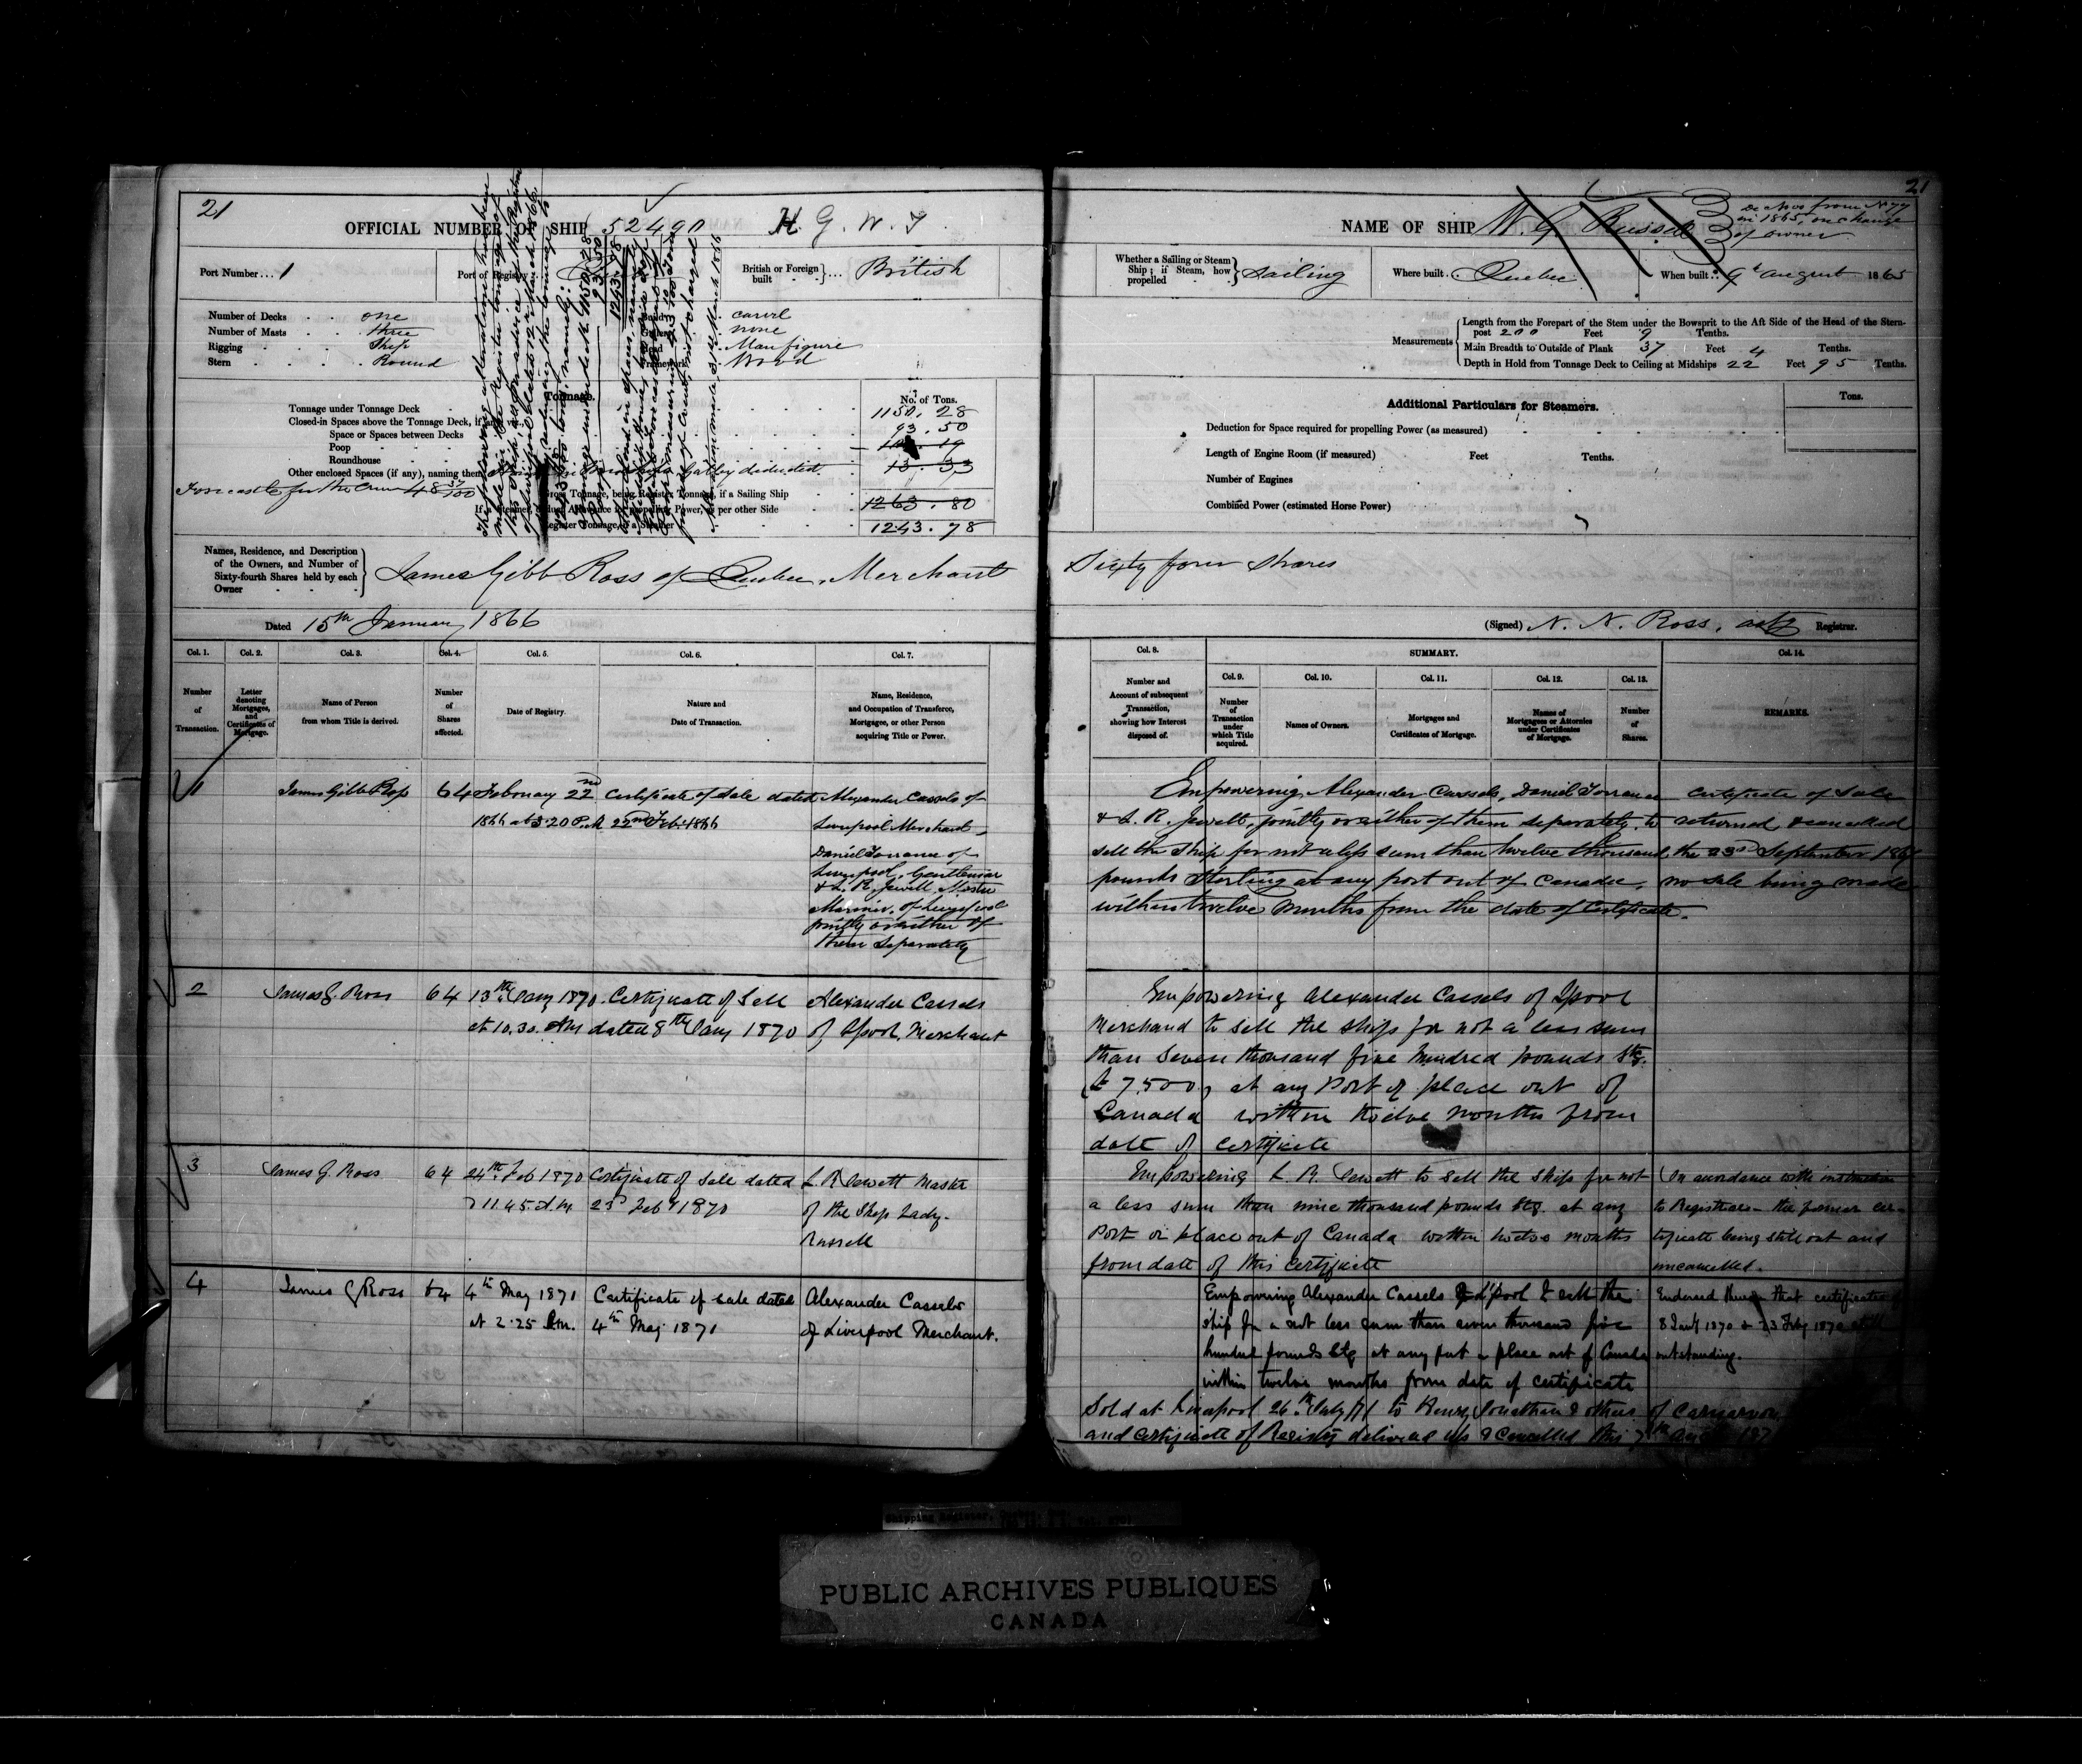 21
OFFICIAL NUMBER OF SHIP 52490 H. G. W. T.
Port Number... 1
Port of Registry
British or Foreign built British
Number of Decks one
Number of Masts three
Rigging Ship
Stern Round
carvel
none
Head Man figure
Framework Wood
Tonnage.
No. of Tons.
Tonnage under Tonnage Deck 1150.28
Closed-in Spaces above the Tonnage Deck, if any, viz.
Space or Spaces between Decks 93.50
Poop
Roundhouse 13.33
Other enclosed Spaces (if any), naming them
Forecastle for the Crew 48 37/100
Gross Tonnage, being Register Tonnage, if a Sailing Ship 1263.80
Register Tonnage, if a Steamer 1243.78
Names, Residence, and Description of the Owners, and Number of Sixty-fourth Shares held by each Owner
James Gibb Ross of Quebec, Merchant
Dated 15th January 1866
Col. 1. Col. 2. Col. 3. Col. 4. Col. 5. Col. 6. Col. 7.
Number of Transaction.
Letter denoting Mortgages, and Certificates of Mortgage.
Name of Person from whom Title is derived.
Number of Shares affected.
Date of Registry.
Nature and Date of Transaction.
Name, Residence, and Occupation of Transferee, Mortgagee, or other Person acquiring Title or Power.
1 James Gibb Ross 64 February 22nd Certificate of Sale dated Alexander Cassels of
1866 at 3.20 P.M. 22nd Feb. 1866 Liverpool Merchant
Daniel Torrance of
Liverpool, Gentleman
& L. R. Jewett Master
Mariner, of Liverpool
jointly or either of
them separately
2 James G. Ross 64 13th Jany 1870 Certificate of Sell Alexander Cassels
at 10.30. AM dated 8th Jany 1870 of Lpool, Merchant
3 James G. Ross 64 24th Feb 1870 Certificate of Sale dated L. R. Jewett Master
11.45. A.M. 23d Feby 1870 of the Ship Lady
Russell
4 James G Ross 64 4th May 1871 Certificate of sale dated Alexander Cassels
at 2.25 P.m. 4th May 1871 of Liverpool Merchant.
21
NAME OF SHIP W. G. Russell
De Novo from N 77
in 1865, on change
of owner
Whether a Sailing or Steam Ship; if Steam, how propelled Sailing
Where built Quebec
When built 9th August 1865
Measurements
Length from the Forepart of the Stem under the Bowsprit to the Aft Side of the Head of the Stern-post 200 Feet 9 Tenths.
Main Breadth to Outside of Plank 37 Feet 4 Tenths.
Depth in Hold from Tonnage Deck to Ceiling at Midships 22 Feet 95 Tenths.
Additional Particulars for Steamers.
Tons.
Deduction for Space required for propelling Power (as measured)
Length of Engine Room (if measured) Feet Tenths.
Number of Engines
Combined Power (estimated Horse Power)
Sixty four Shares
(Signed) N. N. Ross, Registrar.
Col. 8. SUMMARY. Col. 14.
Col. 9. Col. 10. Col. 11. Col. 12. Col. 13.
Number and Account of subsequent Transaction, showing how Interest disposed of.
Number of Transaction under which Title acquired.
Names of Owners.
Mortgages and Certificates of Mortgage.
Names of Mortgagees or Attornies under Certificates of Mortgage.
Number of Shares.
REMARKS.
Empowering Alexander Cassels, Daniel Torrance
& L. R. Jewett, jointly or either of them separately, to
sell the Ship for not a less sum than twelve thousand
pounds Sterling at any port out of Canada,
within twelve months from the date of Certificate.
Certificate of Sale
returned & cancelled
the 23d September 186
no sale being made
Empowering Alexander Cassels of Lpool
Merchand to sell the ship for not a less sum
than seven thousand five hundred pounds Stg.
£7,500, at any Port of place out of
Canada within twelve months from
date of certificate
Empowering L. R. Jewett to sell the ship for not
a less sum than nine thousand pounds Stg. at any
Port or place out of Canada within twelve months
from date of this certificate
In accordance with instruction
to Registrars - the former cer-
tificate being still out and
uncancelled.
Empowering Alexander Cassels of L'pool to sell the
ship for a not less sum than seven thousand five
hundred pounds Stg at any port or place out of Canada
within twelve months from date of certificate
Endorsed that certificates
8 Jany 1870 & 23 Feby 1870 still
outstanding.
Sold at Liverpool 26th July 71 to Henry Jonathan & others of Carnarvon
and certificate of Registry delivered up & cancelled this 7th
PUBLIC ARCHIVES PUBLIQUES
CANADA